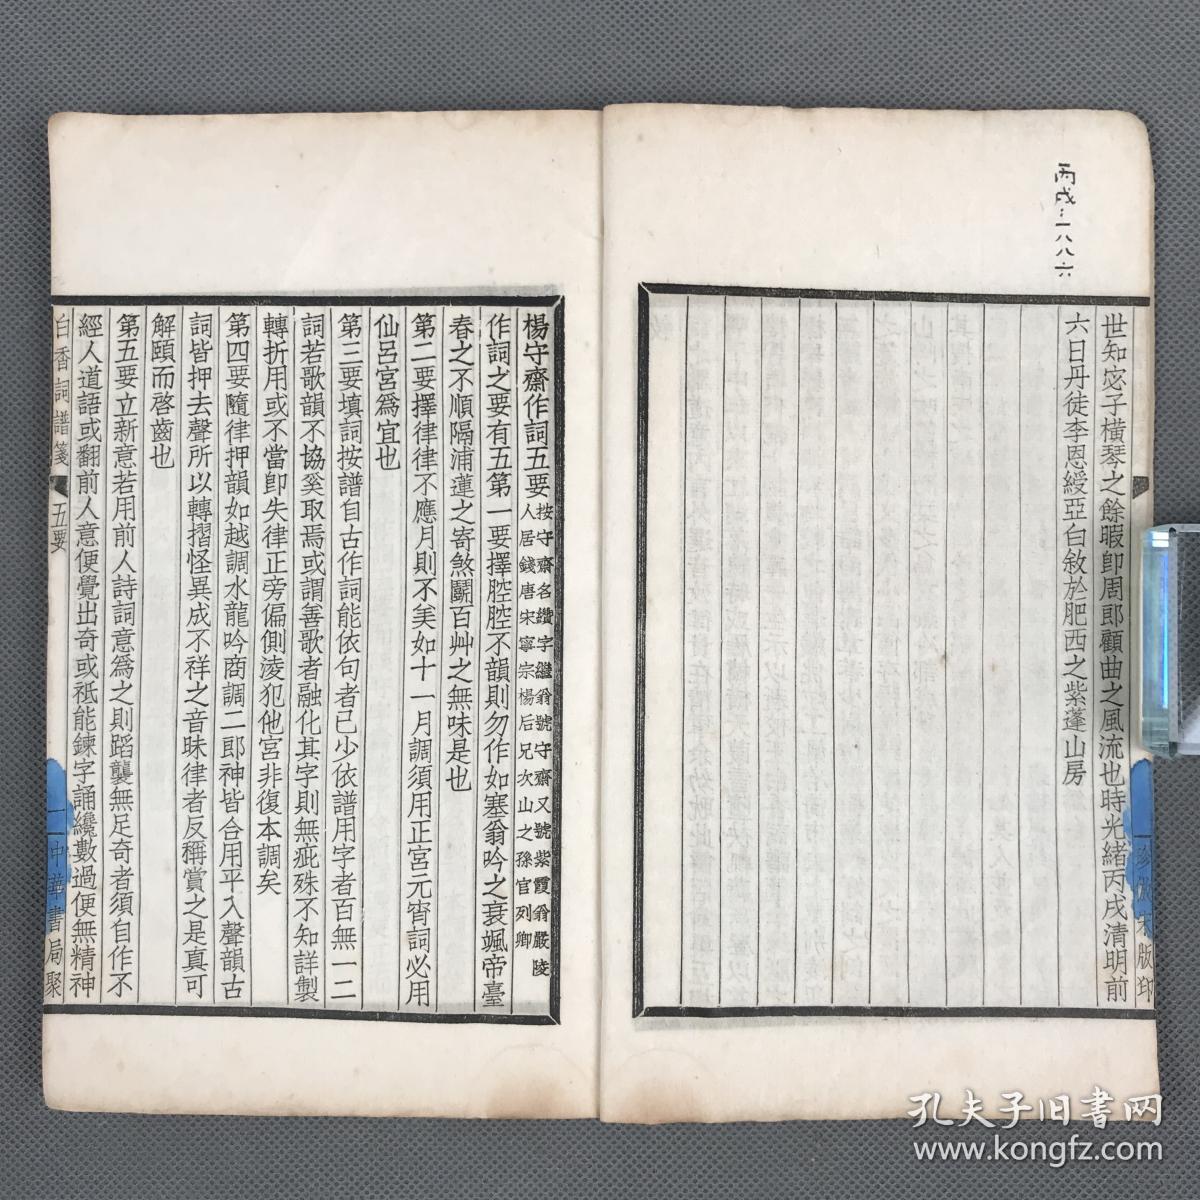 丙戌:一八八六
世知宓子橫琴之餘暇卽周郎顧曲之風流也時光緒丙戌清明前
六日丹徒李恩綬亞白敘於肥西之紫蓬山房
珍倣宋版印
楊守齋作詞五要按守齋名纘字繼翁號守齋又號紫霞翁嚴陵
人居錢唐宋寧宗楊后兄次山之孫官列卿
作詞之要有五第一要擇腔腔不韻則勿作如塞翁吟之衰颯帝臺
春之不順隔浦蓮之寄煞鬭百艸之無味是也
第二要擇律律不應月則不美如十一月調須用正宮元宵詞必用
仙呂宮爲宜也
第三要塡詞按譜自古作詞能依句者已少依譜用字者百無一二
詞若歌韻不協奚取焉或謂善歌者融化其字則無疵殊不知詳製
轉折用或不當卽失律正旁偏側淩犯他宮非復本調矣
第四要隨律押韻如越調水龍吟商調二郎神皆合用平入聲韻古
詞皆押去聲所以轉摺怪異成不祥之音昧律者反稱賞之是真可
解頤而啓齒也
第五要立新意若用前人詩詞意爲之則蹈襲無足奇者須自作不
經人道語或翻前人意便覺出奇或祇能鍊字誦纔數過便無精神
白香詞譜箋
五要
一
中華書局聚
孔夫子旧书网
www.kongfz.com